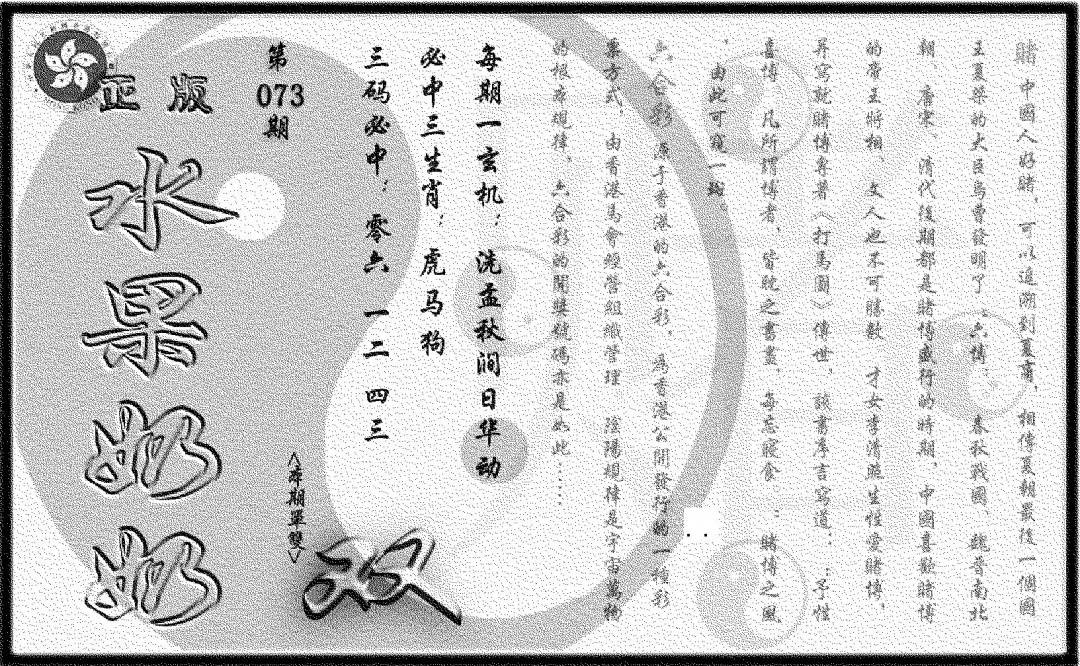 正版
水果奶奶
第
073
期
三码必中：零六 一二 四三
必中三生肖：虎马狗
每期一玄机：洗盂秋涧日华动
<本期單雙>
双
賭 中國人好賭，可以追溯到夏商，相傳夏朝最後一個國
王夏桀的大臣烏曹發明了「六博」 春秋戰國、魏晋南北
朝、唐宋、清代後期都是賭博盛行的時期，中國喜歡賭博
的帝王將相 文人也不可勝數 才女李清照生性愛賭博，
并寫就賭博專著《打馬圖》傳世，該書序言寫道：：予性
喜博 凡所謂博者，皆耽之晝夜，每忘寢食 ：賭博之風
，由此可窺一斑。
六合彩 源于香港的六合彩，為香港公開發行的一種彩
票方式，由香港馬會經營組織管理 陰陽規律是宇宙萬物
的根本規律，六合彩的開獎號碼亦是如此……